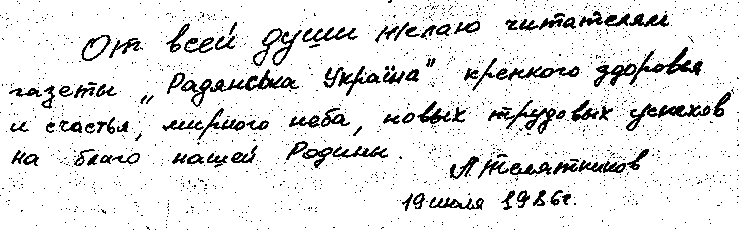 От всей души желаю читателям
газеты „Радянська Україна" крепкого здоровья
и счастья, мирного неба, новых трудовых успехов
на благо нашей Родины.
Л Телятников
19 июля 1986г.